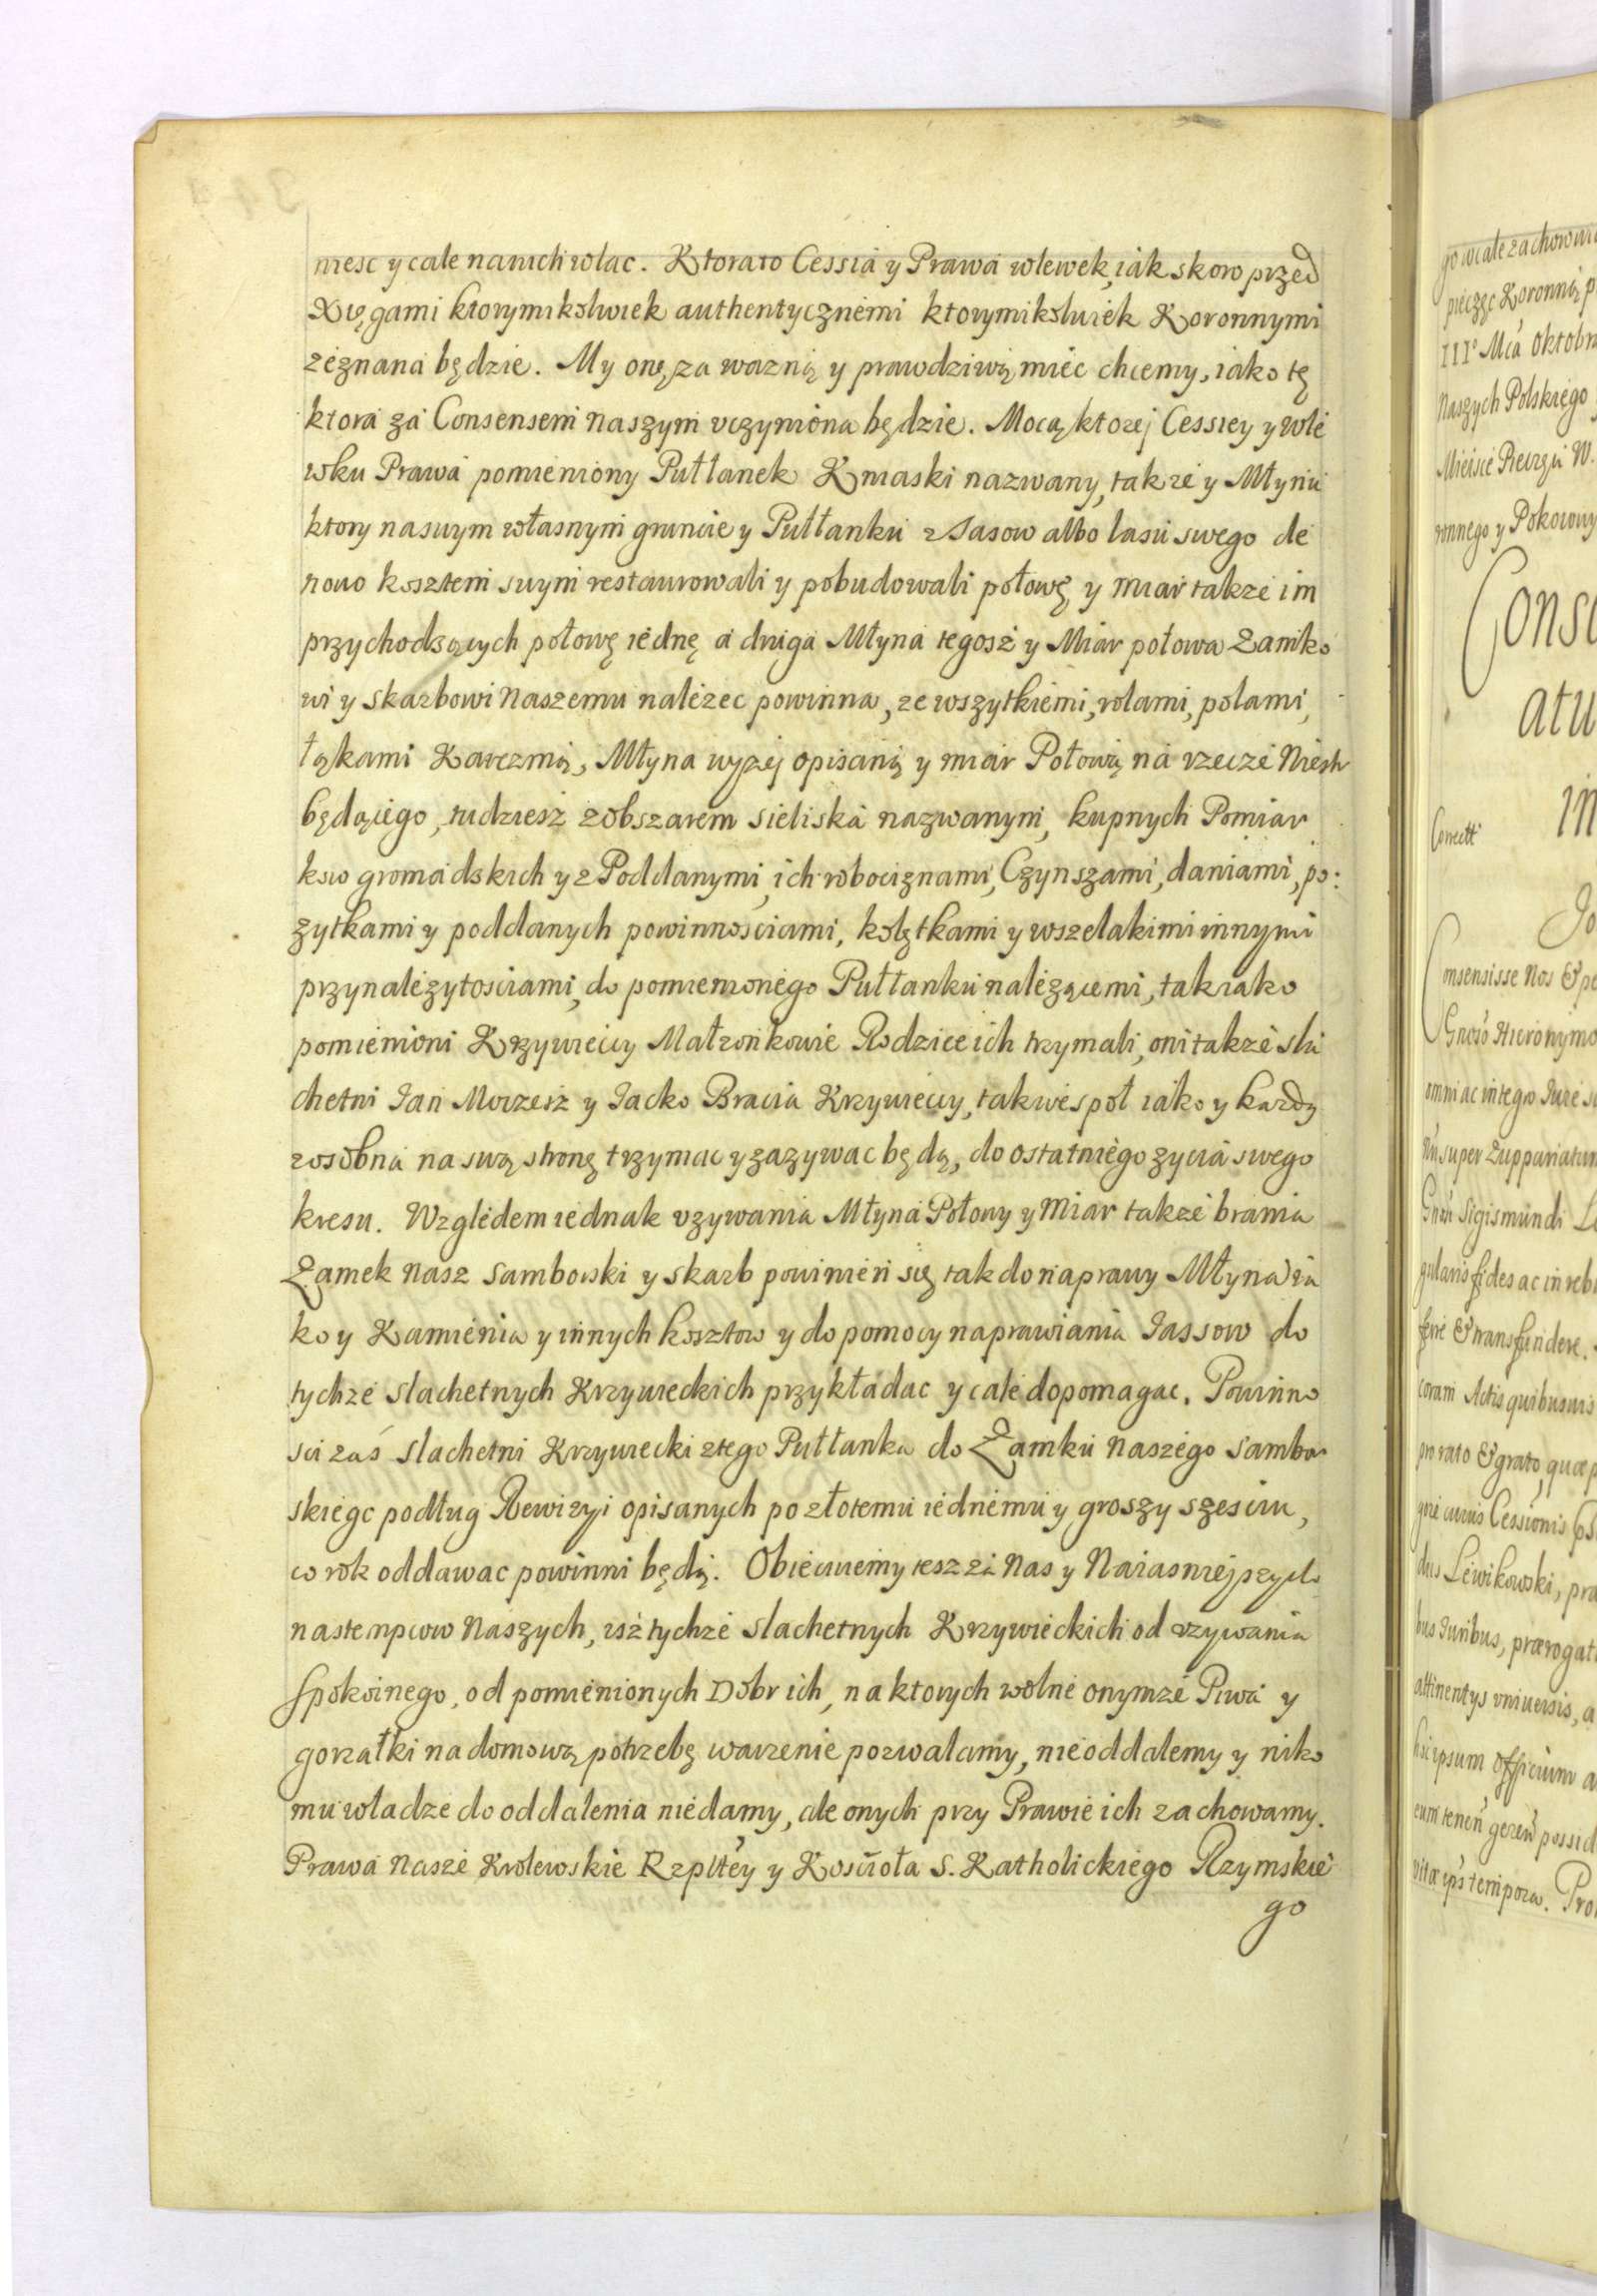 niesc y cale na nich wlac. Ktora to Cessia y Prawa wlewek, iak skoro przed
Xięgami ktorymikolwiek authentycznemi ktorymikolwiek Koronnymi
zeznana będzie. My onę za wazną y prawdziwą miec chcemy, iako tę
ktora za Consensem naszym vczyniona będzie. Mocą ktorej Cessiey y wle
wku Prawa pomieniony Pułłanek Kniaski nazwany, takze y Młynu
ktory na swym własnym gruncie y Pułłanku z Jasow albo lasu swego de
nouo kosztem swym restaurowali y pobudowali połowę y miar takze im
przychodzących połowę iednę a druga Młyna tegosz y Miar połowa Zamko
wi y skarbowi Naszemu nalezec powinna, ze wszytkiemi, rolami, polami,
łąkami Karczmią, Młyna wyzej opisaną y miar Połową na rzecze Niestr
będącego, tudziesz z obszarem sieliska nazwanym, kupnych Pomiar
kow gromadskich y z Poddanymi, ich robociznami, Czynszami, daniami, po:
zytkami y poddanych powinnosciami, kolętkami y wszelakimi innymi
przynalezytosciami, do pomienionego Pułłanku nalezącemi, tak iako
pomienioni Krzywieccy Małzonkowie Rodzice ich trzymali, oni takze sla
chetni Jan Moyzesz y Jacko Bracia Krzywieccy, tak wespoł iako y kazdy
zosobna na swą stronę trzymac y zazywac będą, do ostatniego zycia swego
kresu. Względem iednak vzywania Młyna Połowy y Miar takze brania
Zamek Nasz Samborski y skarb powinien się tak do naprawy Młyna ia
ko y Kamienia y innych kosztow y do pomocy naprawiania Jassow do
tychze slachetnych Krzywieckich przykładac y cale dopomagac. Powinno
sci zaś slachetni Krzywiecki z tego Pułłanka do Zamku Naszego Sambor
skiego podług Rewizyi opisanych po złotemu iednemu y groszy szesciu,
co rok oddawac powinni będą. Obiecuiemy tesz za Nas y Naiasniejszych
nastempcow Naszych, isz tychze slachetnych Krzywieckich od vzywania
spokoinego, od pomienionych Dobr ich, na ktorych wolne onymze Piwa y
gorzałki na domową potrzebę warzenie pozwalamy, nie oddalemy y niko
mu władze do oddalenia niedamy, ale onych przy Prawie ich zachowamy.
Prawa Nasze Krolewskie Rzpltey y Kościoła S. Katholickiego Rzymskie
go
go wcale zachowu
pieczęc Koronną p
III° Mca Oktobr
Naszych Polskiego
Mieisce Pieczęci W.
ronnego y Pokoiowy
Conse
atu
in
Correctt
Jo
Consensisse Nos & pe
Gnoso Hieronymo
omni ac integro Jure su
super Zuppariatum
Sigismundi
gularis fides ac in reb
ferre & transfundere.
coram Actis quibusuis
pro rato & grato, quae p
Cessionis
Lewikowski, pra
bus Juribus, praerogat
attinentys vniuersis, a
ipsum officium a
possid
tempora. Pro